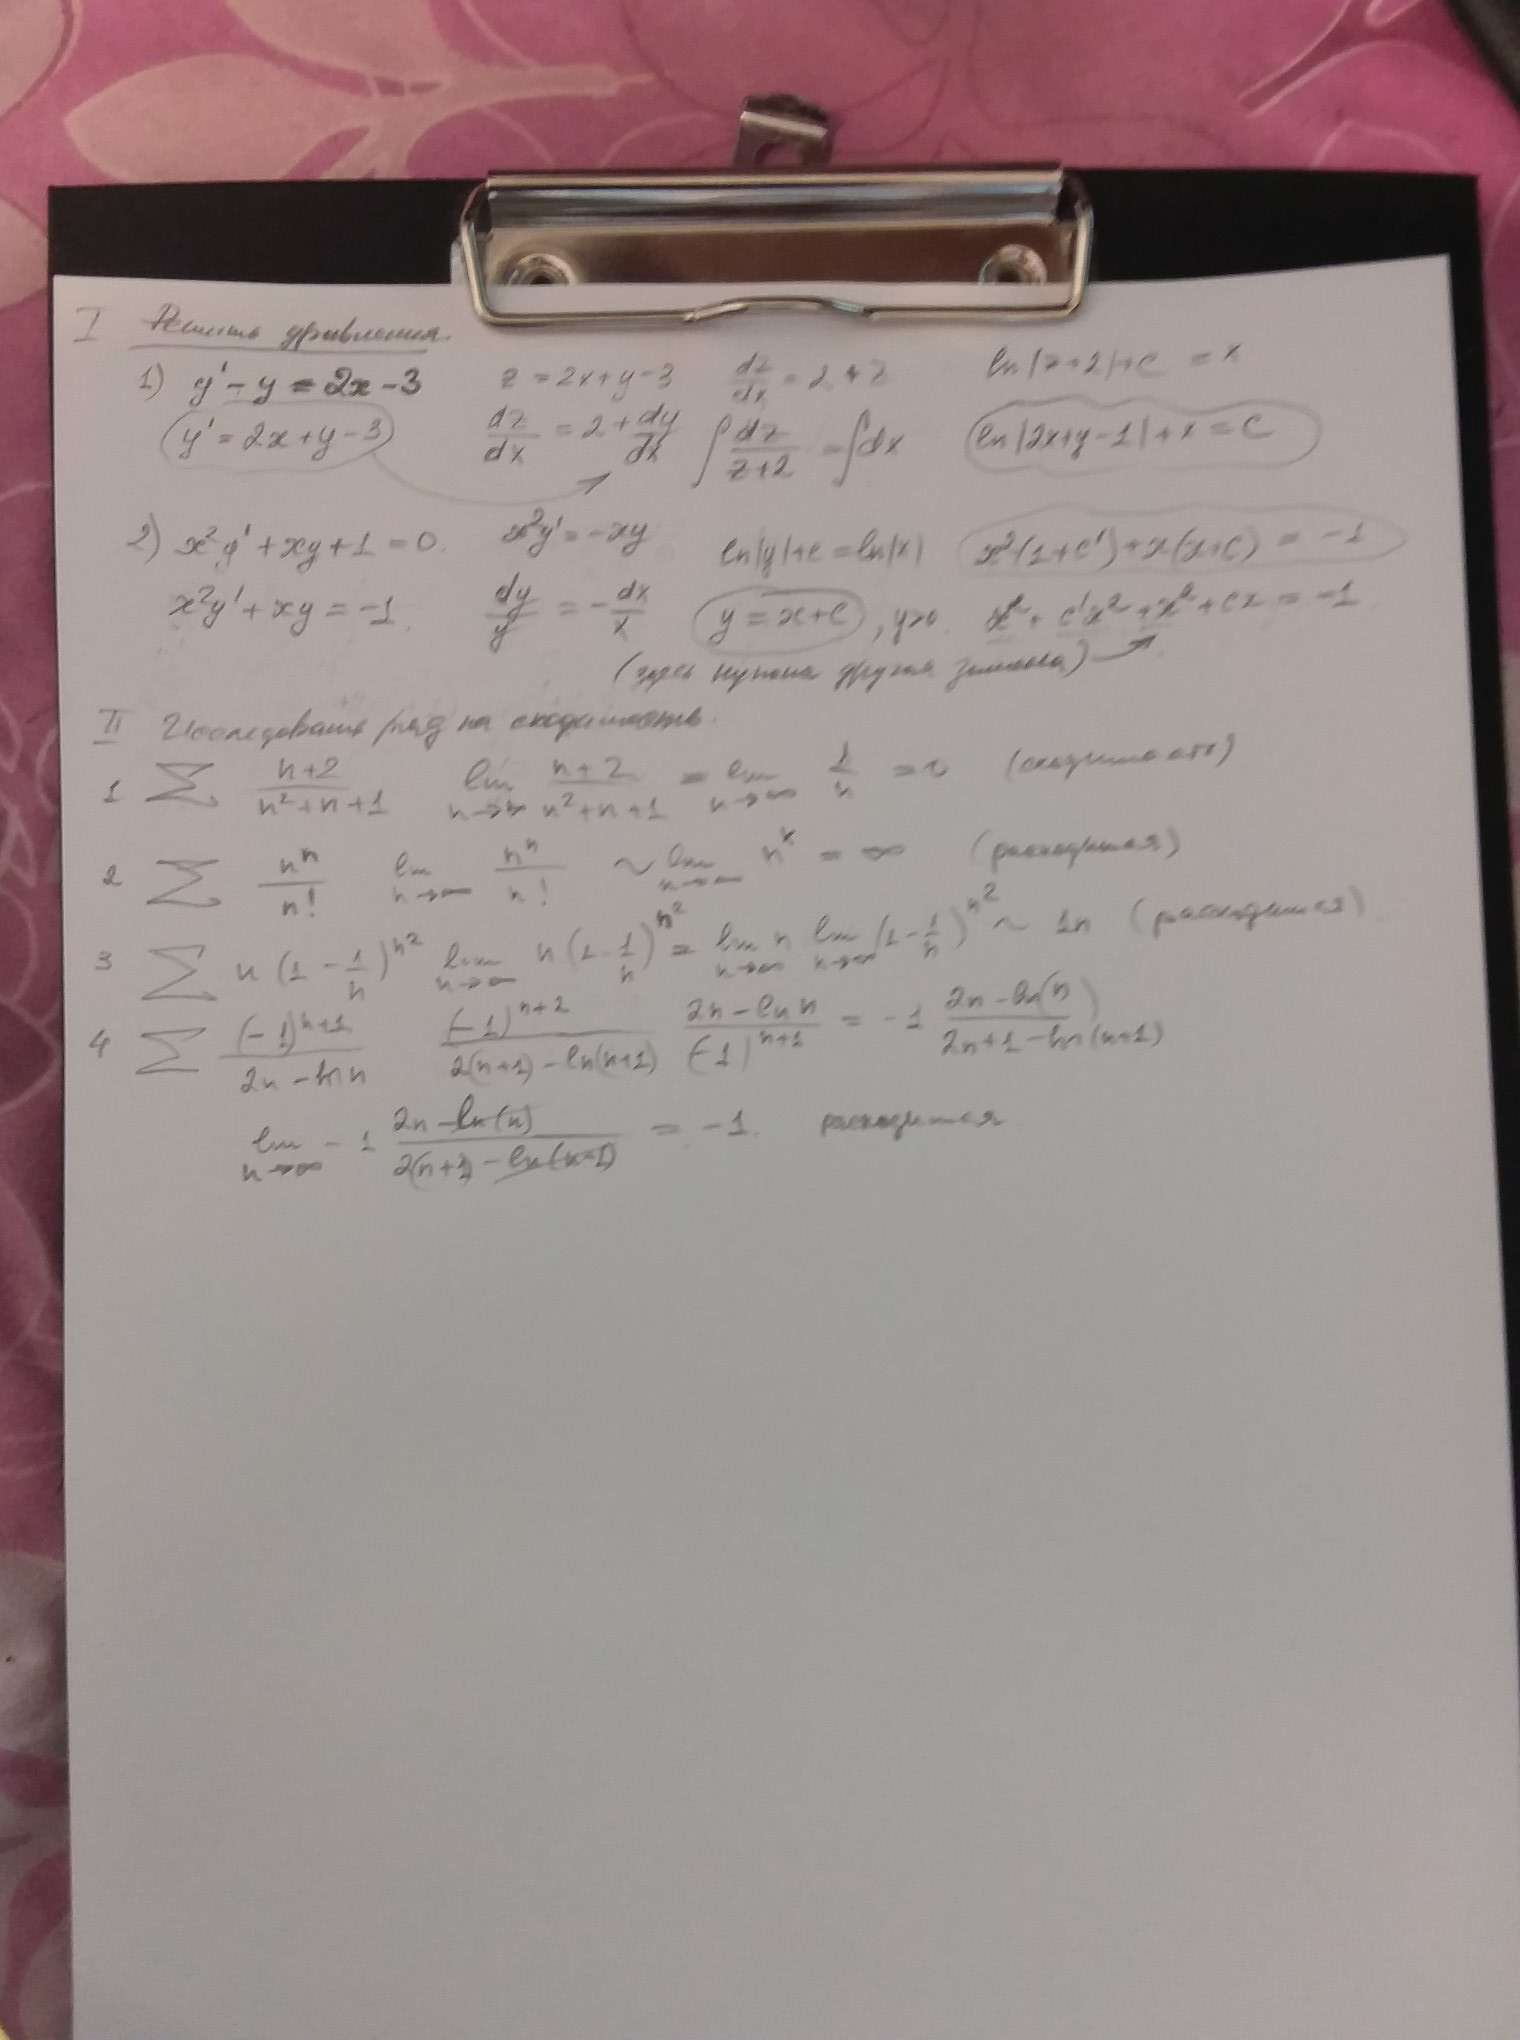 I Решить уравнения.
1) y' - y = 2x - 3    z = 2x + y - 3    dz/dx = 2 + z    ln|z+2| + c = x
y' = 2x + y - 3    dz/dx = 2 + dy/dx    ∫ dz/(z+2) = ∫ dx    ln|2x+y-1| + x = C
2) x²y' + xy + 1 = 0.    x²y' = -xy    ln|y| + c = ln|x|    x²(1+c') + x(x+c) = -1
x²y' + xy = -1.    dy/y = -dx/x    y = x + c, y>0    x² + c'x² + x² + cx = -1
(здесь нужна другая замена)
II Исследовать ряд на сходимость.
1 ∑ (n+2)/(n²+n+1)    lim n→∞ (n+2)/(n²+n+1) = lim n→∞ 1/n = 0 (сходится)
2 ∑ nⁿ/n!    lim n→∞ nⁿ/n! ~ lim n→∞ nᵏ = ∞ (расходится)
3 ∑ n(1 - 1/n)^n²    lim n→∞ n(1 - 1/n)^n² = lim n→∞ n lim n→∞ (1 - 1/n)^n² ~ 1n (расходится)
4 ∑ (-1)^(n+1)/(2n - ln n)    (-1)^(n+2)/(2(n+1) - ln(n+1)) (2n - ln n)/(-1)^(n+1) = -1 (2n - ln(n))/(2n+1 - ln(n+1))
lim n→∞ -1 (2n - ln(n))/(2(n+1) - ln(n+1)) = -1. расходится